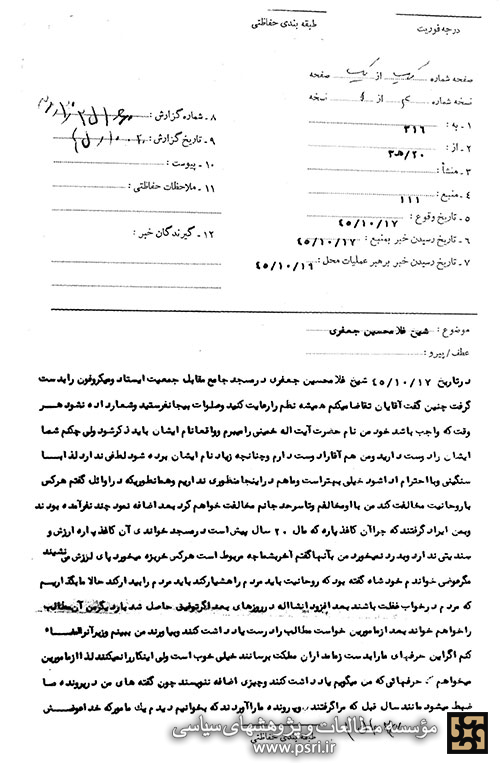 طبقه بندی حفاظتی
درجه فوریت
صفحه شماره یک از یک صفحه
نسخه شماره از نسخه
۱ - به : ۳۱۶
۲ - از : ۲۰/ﻫ۳
۳ - منشأ :
۴ - منبع : ۱۱۱
۵ - تاریخ وقوع : ۴۵/۱۰/۱۷
۶ - تاریخ رسیدن خبر بمنبع : ۴۵/۱۰/۱۷
۷ - تاریخ رسیدن خبر برهبر عملیات محل : ۴۵/۱۰/۱۹
۸ - شماره گزارش :
۹ - تاریخ گزارش :
۱۰ - پیوست :
۱۱ - ملاحظات حفاظتی :
۱۲ - گیرندگان خبر :
موضوع : شیخ غلامحسین جعفری
عطف/پیرو :
درتاریخ ۴۵/۱۰/۱۷ شیخ غلامحسین جعفری درمسجد جامع مقابل جمعیت ایستاد ومیکروفون رابدست
گرفت چنین گفت آقایان تقاضا میکنم همیشه نظم رارعایت کنید وصلوات بیجا نفرستید وشعارداده نشود هر
وقت که واجب باشد خود من نام حضرت آیت اله خمینی رامیبرم وواقعا نام ایشان باید ذکرشود ولی چکنم شما
ایشان راد وست دارید ومن هم آقاراد وست دارم وچنانچه زیاد نام ایشان برده شود لطفی ندارد لذا با
سنگینی وبااحترام اداشود خیلی بهتراست وماهم دراینجا منظوری نداریم وهمانطوریکه دراوائل گفتم هرکس
باروحانیت مخالفت کند من بااومخالفم وتاسرحد جانم مخالفت خواهم کرد بعد اضافه نمود چند نفرآمده بودند
وبمن ایراد گرفتند که چراآن کاغذ پاره که مال ۲۰ سال پیش است درمسجد خواندی آن کاغذ پاره ارزش و
سندیتی ندارد وبدرد نمیخورد من بآنها گفتم آخربشما چه مربوط است هرکس خربزه میخورد پای لرزش می نشیند
مگرعوضی خواندم خود شاه گفته بود که روحانیت باید مردم راهشیارکند باید مردم رابیدارکند حالا مابگذاریم
که مردم درخواب غفلت باشند بعد افزود انشااله درروزهای بعد اگرتوفیق حاصل شد باردیگرمن آن مطالب
راخواهم خواند بعد ازمامورین خواست مطالب رادرست یادداشت کنند وبیاورند من ببینم وزیرآنراامضاء
کنم اگراین حرفهای مارابدست زمامداران مملکت برسانند خیلی خوب است ولی اینکاررانمیکنند لذاازمامورین
میخواهم که حرفهائی که من میگویم یادداشت کنند وچیزی اضافه ننویسند چون گفته های من درپرونده ما
ضبط میشود مانند سال قبل که مراگرفتند وپرونده ماراآوردند که بخوانیم دیدم یک مامورکه خداعوضش
طبقه بندی حفاظتی
مؤسسه مطالعات و پژوهشهای سیاسی
www.psri.ir